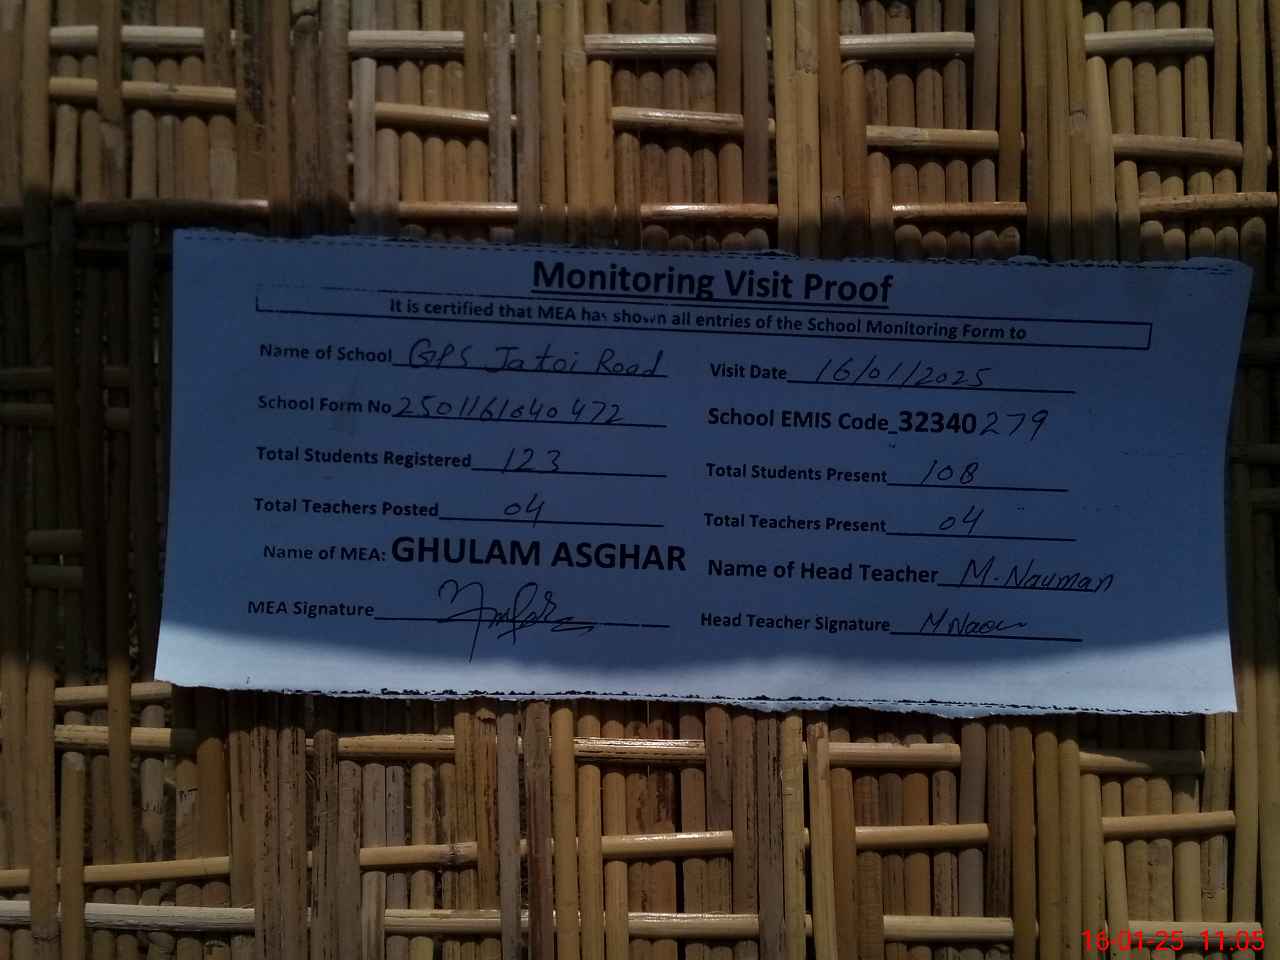 Monitoring Visit Proof
It is certified that MEA has shown all entries of the School Monitoring Form to
Name of School GPS Jatoi Road Visit Date 16/01/2025
School Form No 2501161040472 School EMIS Code_32340279
Total Students Registered 123 Total Students Present 108
Total Teachers Posted 04 Total Teachers Present 04
Name of MEA: GHULAM ASGHAR Name of Head Teacher M. Nauman
MEA Signature Head Teacher Signature
16-01-25 11:05